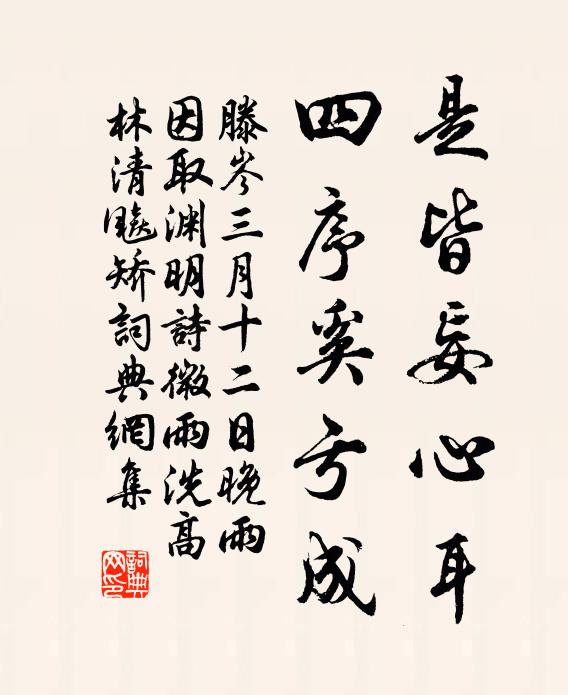 是皆妄心耳
四序奚亏成
滕岑三月十二日晚雨
因取渊明詩微雨洗高
林清飈矫詞典網集
詞典网印